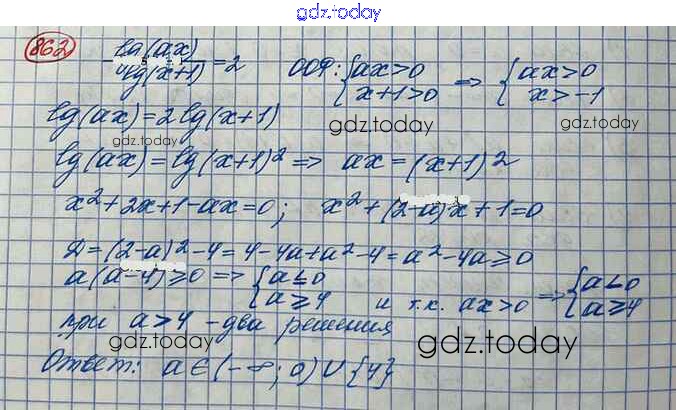 gdz.today
862 lg(ax)/lg(x+1) = 2 ООФ: {ax>0 x+1>0 => {ax>0 x>-1
lg(ax)=2lg(x+1)
gdz.today
gdz.today
lg(ax)=lg(x+1)² => ax=(x+1)²
x²+2x+1-ax=0; x²+(2-a)x+1=0
D=(2-a)²-4=4-4a+a²-4=a²-4a≥0
a(a-4)≥0 => {a≤0 a≥4 и т.к. ax>0 => {a<0 a≥4
при a>4 - два решения
gdz.today
Ответ: a∈(-∞;0)∪{4}